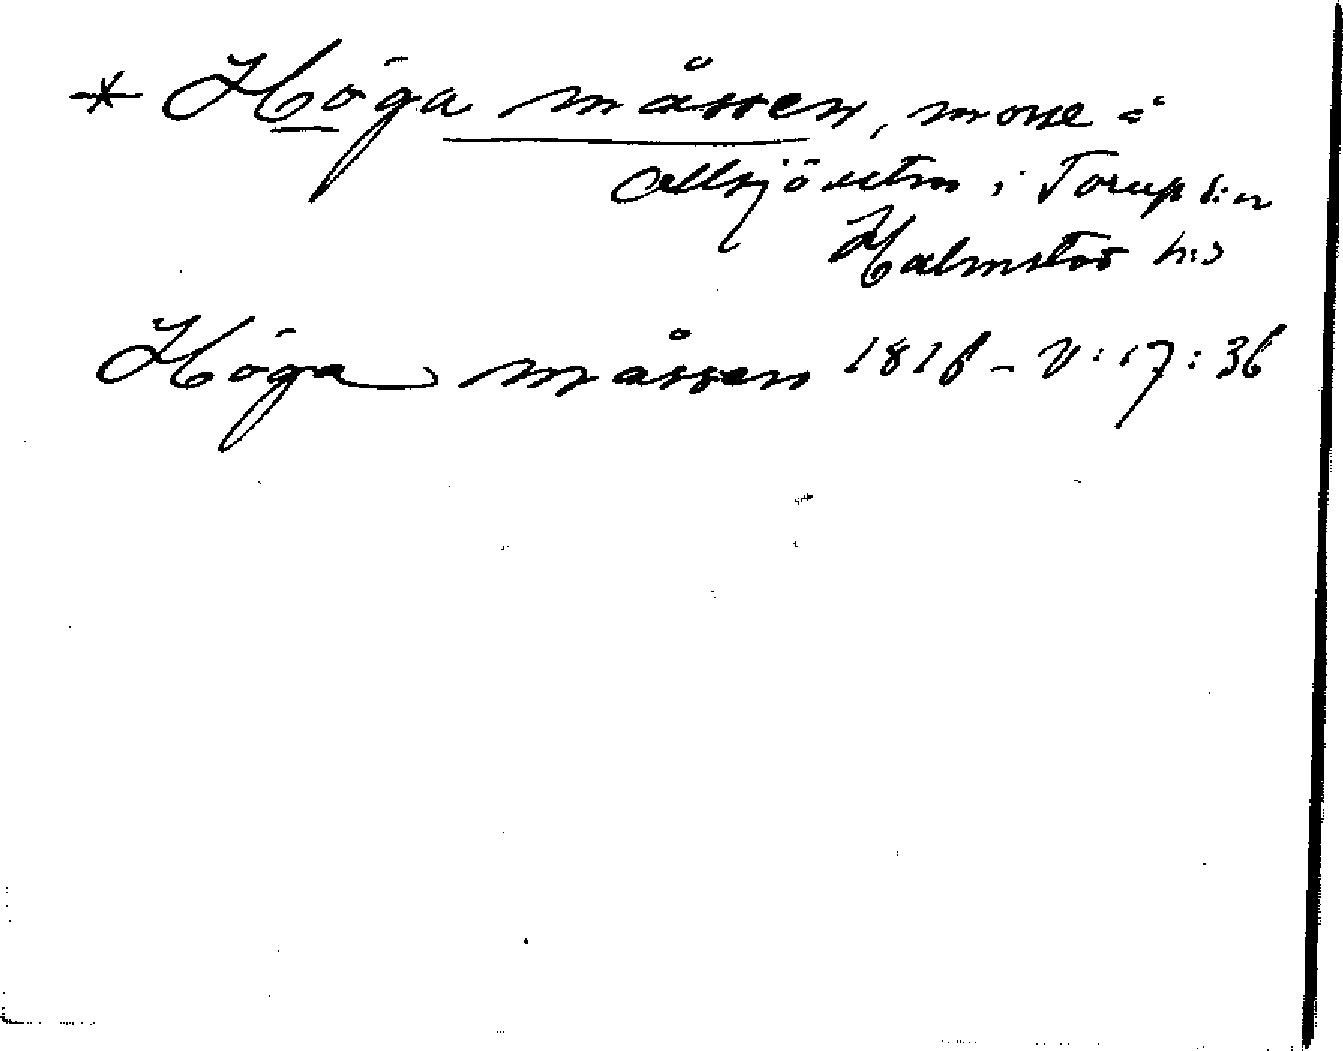 * Höga måssen, mosse å
Allsjöselm i Torup s:n
Halmstad h:d
Höga måssen 1818 - V:17:36